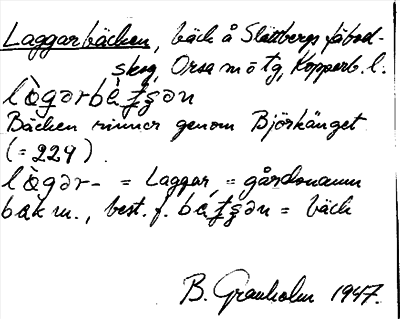 Laggarbäcken, bäck å Slättbergs fäbod-
skog, Orsa m o tg, Kopparb. l.
lògərbèʈʂən
Bäcken rinner genom Björkänget
(= 229).
lògər- = Laggar, = gårdsnamn
bak m., best. f. bèʈʂən = bäck
B. Granholm 1947.